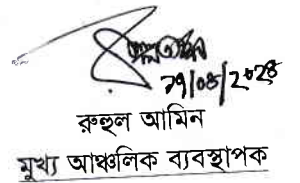 ২৭/০৪/২০২৪
রুহুল আমিন
মুখ্য আঞ্চলিক ব্যবস্থাপক